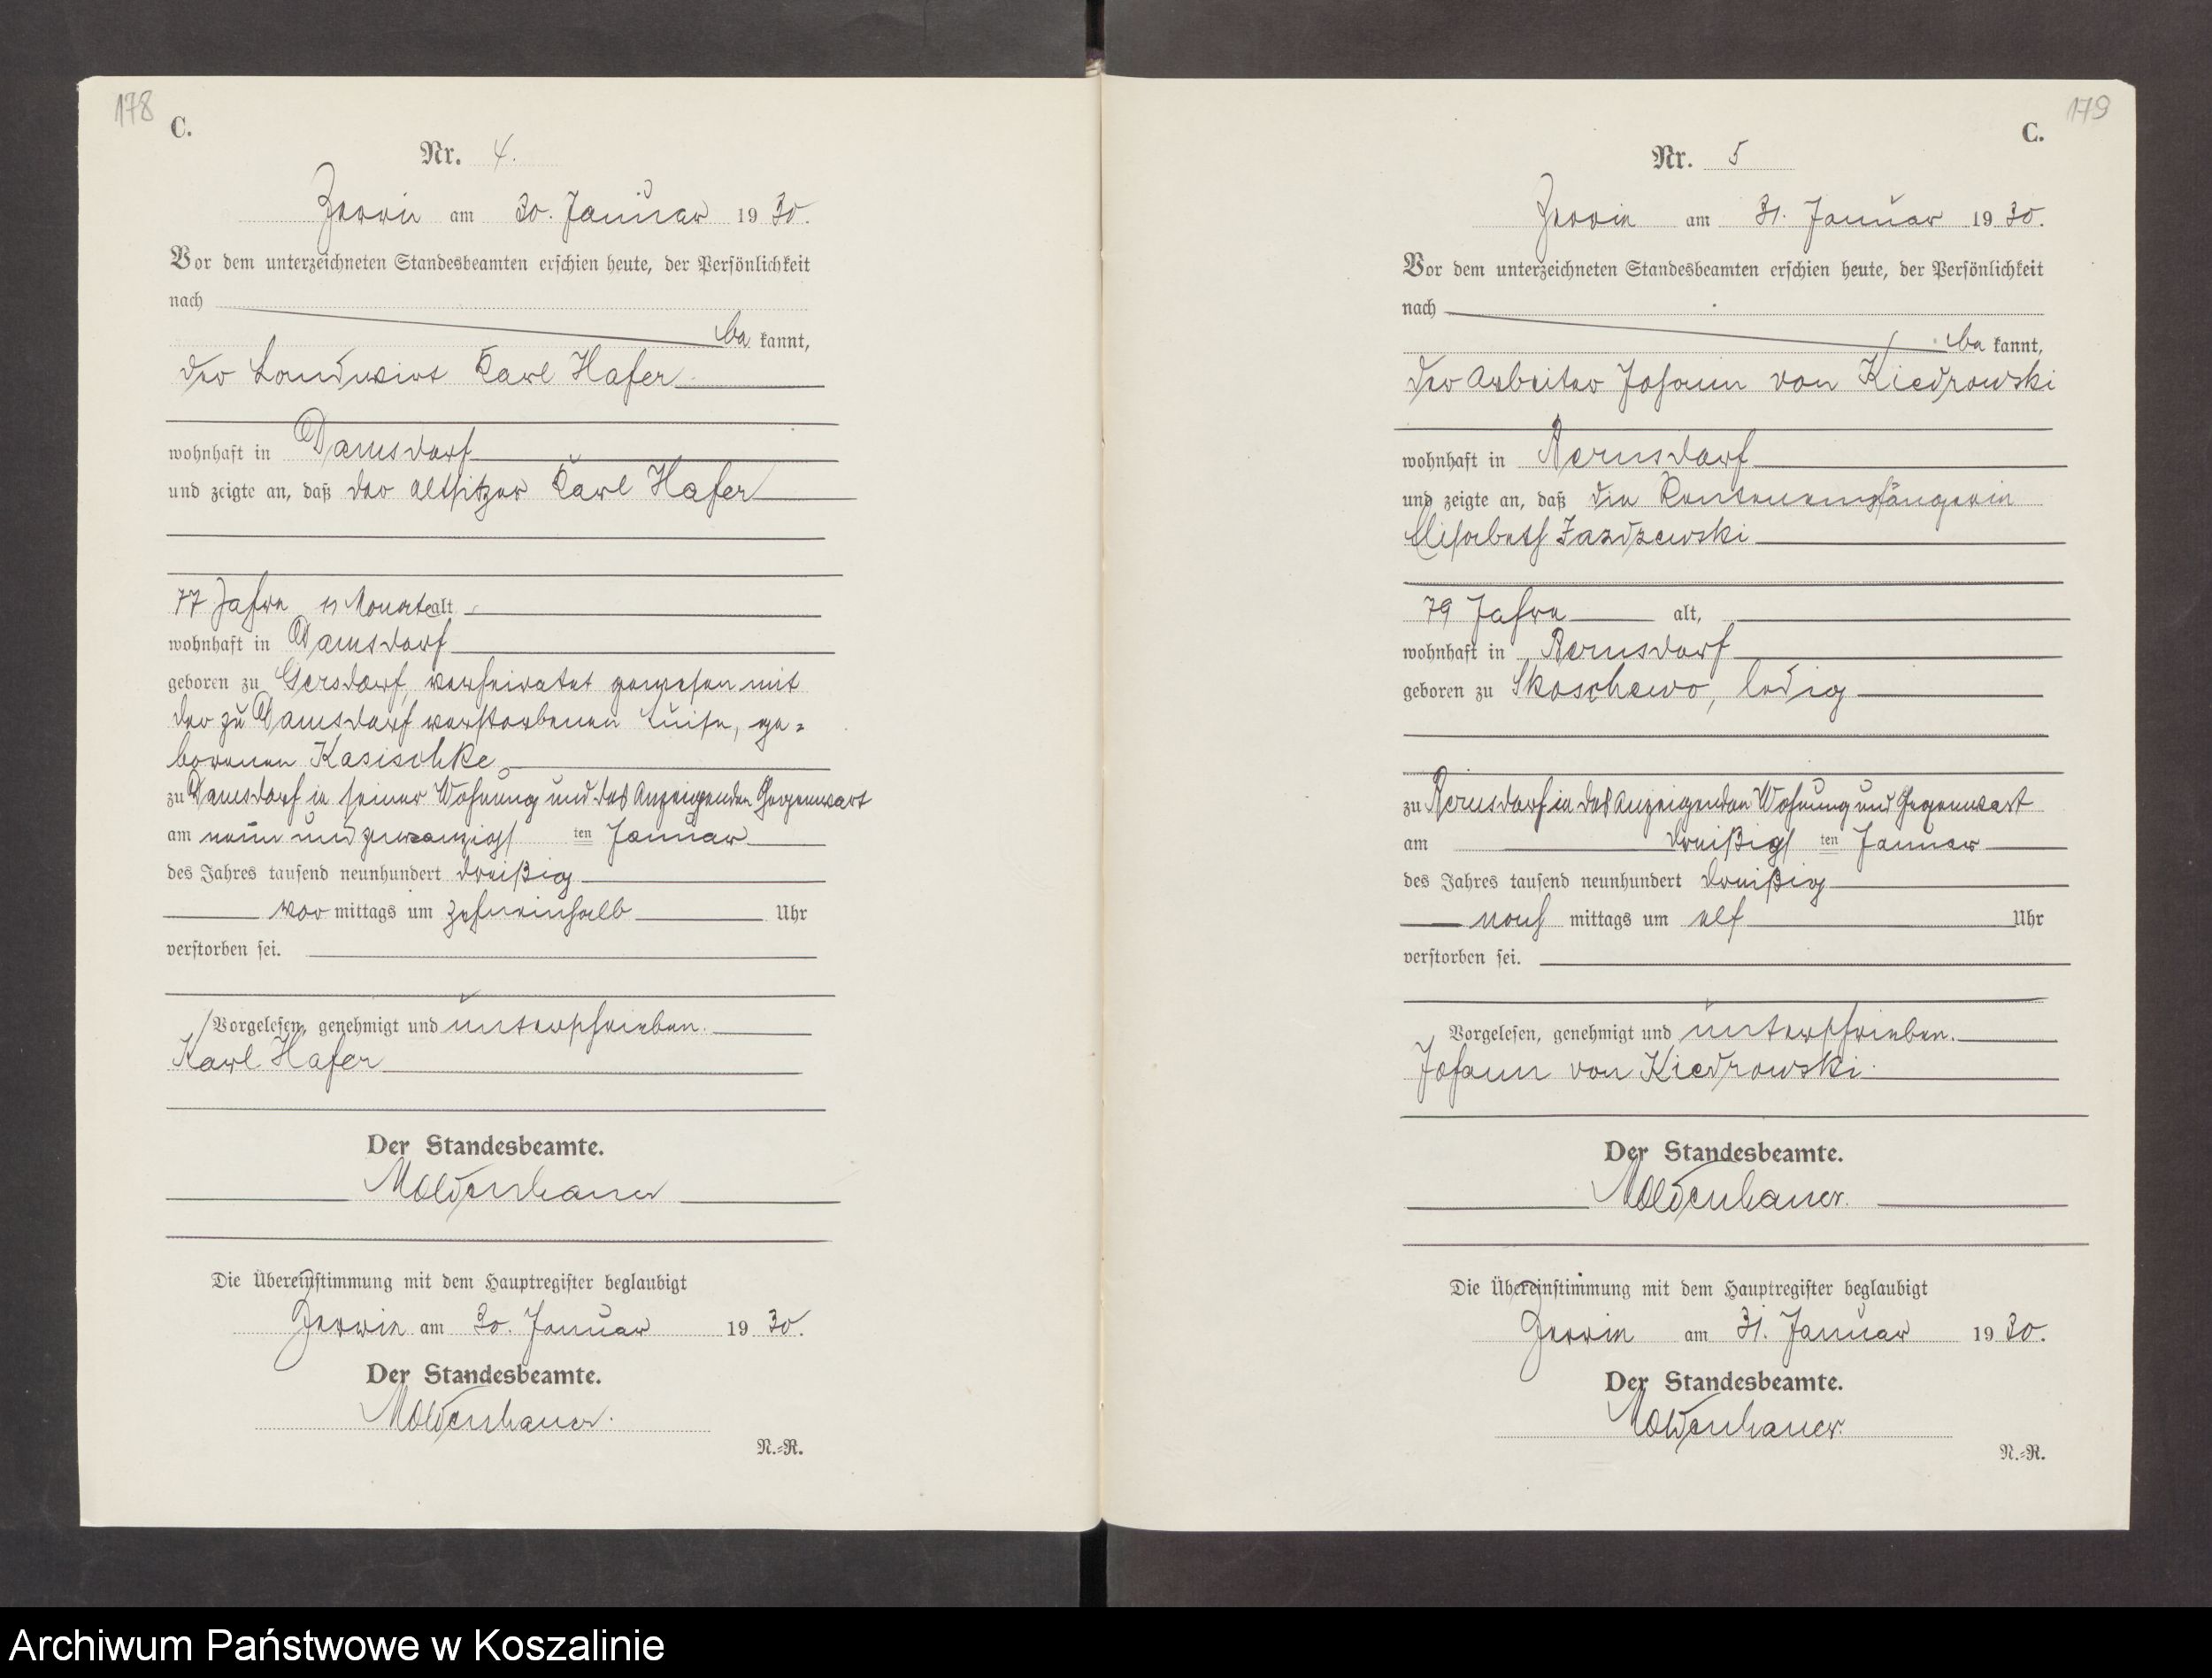 178
C.
Nr. 4.
Jassen am 30. Januar 1930.
Vor dem unterzeichneten Standesbeamten erschien heute, der Persönlichkeit
nach
be kannt,
der Landwirt Karl Hafer
wohnhaft in Damsdorf
und zeigte an, daß der Altsitzer Karl Hafer
77 Jahre 11 Monate alt
wohnhaft in Damsdorf
geboren zu Gersdorf, verheiratet gewesen mit
der zu Damsdorf verstorbenen Luise, ge=
borenen Kasischke
zu Damsdorf in seiner Wohnung und des Anzeigenden Gegenwart
am neun und zwanzigsten Januar
des Jahres tausend neunhundert dreißig
vor mittags um zehneinhalb Uhr
verstorben sei.
Vorgelesen, genehmigt und unterschrieben.
Karl Hafer
Der Standesbeamte.
Moldenhauer
Die Übereinstimmung mit dem Hauptregister beglaubigt
am 30. Januar 1930.
Der Standesbeamte.
Moldenhauer.
N.=R.
179
C.
Nr. 5
am 31. Januar 1930.
Vor dem unterzeichneten Standesbeamten erschien heute, der Persönlichkeit
nach
be kannt,
der Arbeiter Johann von Kiedrowski
wohnhaft in Bernsdorf
und zeigte an, daß die Rentenempfängerin
Elisabeth Jazdzewski
79 Jahre alt,
wohnhaft in Bernsdorf
geboren zu Skoschewo, ledig
zu Bernsdorf in des Anzeigenden Wohnung und Gegenwart
am dreißigsten Januar
des Jahres tausend neunhundert dreißig
nach mittags um elf Uhr
verstorben sei.
Vorgelesen, genehmigt und unterschrieben.
Johann von Kiedrowski
Der Standesbeamte.
Moldenhauer.
Die Übereinstimmung mit dem Hauptregister beglaubigt
am 31. Januar 1930.
Der Standesbeamte.
Moldenhauer.
N.=R.
Archiwum Państwowe w Koszalinie